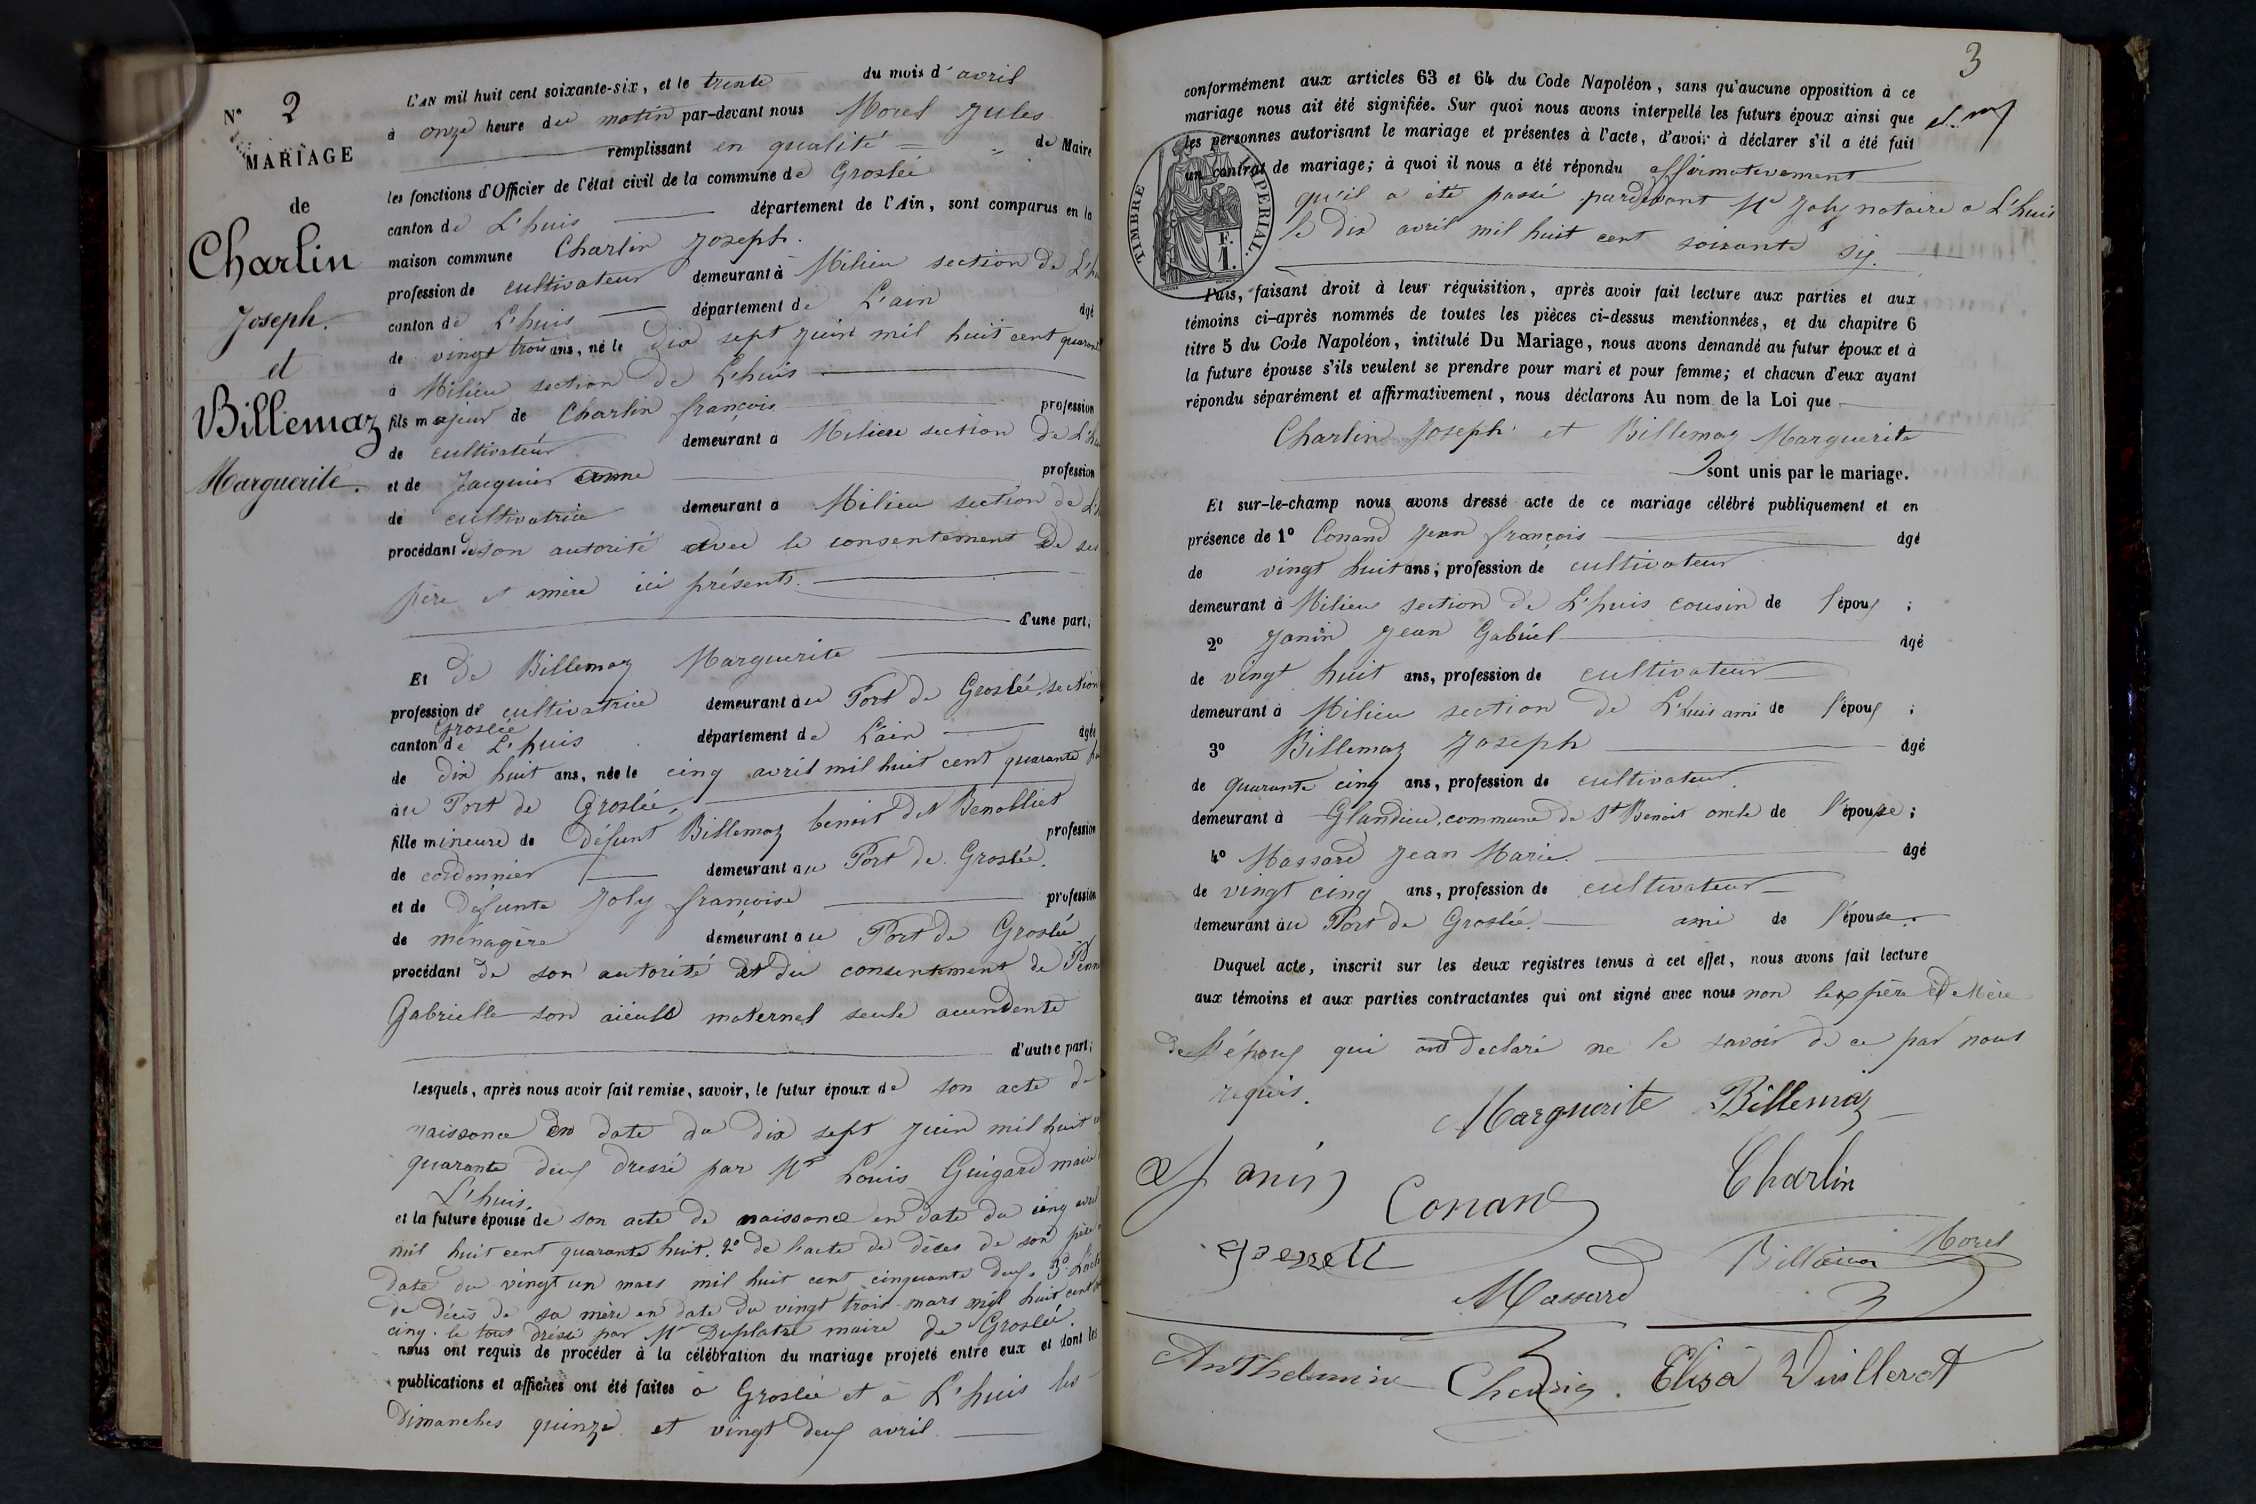 N° 2
MARIAGE
de
Charlin
Joseph.
et
Billemaz
Marguerite.
L'AN mil huit cent soixante-six, et le trente du mois d'avril
à onze heure du matin par-devant nous Morel Jules
remplissant en qualité = = de Maire
les fonctions d'Officier de l'état civil de la commune de Groslée
canton de L'huis département de l'Ain, sont comparus en la
maison commune Charlin Joseph.
profession de cultivateur demeurant à Milieu section de L'h
canton de L'huis département de L'ain âgé
de vingt trois ans, né le dix sept juin mil huit cent quarant
à Milieu section de L'huis
fils majeur de Charlin françois profession
de cultivateur demeurant a Milieu section de L'h
et de Jacquier anne profession
de cultivatrice demeurant a Milieu section de L'
procédant de son autorité avec le consentement de ses
père et mère ici présents.
d'une part,
Et de Billemaz Marguerite
profession de cultivatrice demeurant au Port de Groslée, section
Groslée
canton de L'huis département de L'ain âgée
de dix huit ans, née le cinq avril mil huit cent quarante h
au Port de Groslée,
fille mineure de défunt Billemaz benoit dit Benolliet profession
de cordonnier demeurant au Port de Groslée.
et de défunte Joly françoise profession
de ménagère demeurant au Port de Groslée
procédant de son autorité et du consentement de
Gabrielle son aïeule maternel seule
d'autre part;
Lesquels, après nous avoir fait remise, savoir, le futur époux de son acte de
naissance en date du dix sept juin mil huit
quarante deux dressé par Mr Louis Guigard maire
L'huis.
et la future épouse de son acte de naissance en date du cinq avril
mil huit cent quarante huit. 2° de l'acte de décès de son père
date du vingt un mars mil huit cent cinquante deux. 3° L'acte
de décès de sa mère en date du vingt trois mars mil huit cent
cinq. le tout dréssé par Mr Duplatre maire de Groslée.
nous ont requis de procéder à la célébration du mariage projeté entre eux et dont les
publications et affiches ont été faites à Groslée et à L'huis les
dimanches quinze et vingt deux avril
3
conformément aux articles 63 et 64 du Code Napoléon, sans qu'aucune opposition à ce
mariage nous ait été signifiée. Sur quoi nous avons interpellé les futurs époux ainsi que
les personnes autorisant le mariage et présentes à l'acte, d'avoir à déclarer s'il a été fait
un contrat de mariage; à quoi il nous a été répondu affirmativement
qu'il a été passé pardevant Me Joly notaire a L'huis
le dix avril mil huit cent soixante six.
TIMBRE IMPERIAL.
F.
1.
Puis, faisant droit à leur réquisition, après avoir fait lecture aux parties et aux
témoins ci-après nommés de toutes les pièces ci-dessus mentionnées, et du chapitre 6
titre 5 du Code Napoléon, intitulé Du Mariage, nous avons demandé au futur époux et à
la future épouse s'ils veulent se prendre pour mari et pour femme; et chacun d'eux ayant
répondu séparément et affirmativement, nous déclarons Au nom de la Loi que
Charlin Joseph et Billemaz Marguerite
sont unis par le mariage.
Et sur-le-champ nous avons dressé acte de ce mariage célébré publiquement et en
présence de 1° Conand Jean françois âgé
de vingt huit ans; profession de cultivateur
demeurant à Milieu section de L'huis cousin de l'époux ;
2° Janin Jean Gabriel âgé
de vingt huit ans, profession de cultivateur
demeurant à Milieu section de L'huis ami de l'époux ;
3° Billemaz Joseph âgé
de quarante cinq ans, profession de cultivateur.
demeurant à Glandieu, commune de St Benoit oncle de l'épouse ;
4° Massard Jean Marie. âgé
de vingt cinq ans, profession de cultivateur
demeurant au Port de Groslée. ami de l'épouse.
Duquel acte, inscrit sur les deux registres tenus à cet effet, nous avons fait lecture
aux témoins et aux parties contractantes qui ont signé avec nous non les père et Mère
de l'époux qui ont declaré ne le savoir de ce par nous
requis.
Marguerite Billemaz
Janin
Conand
Charlin
Morel
Massard
Elisa Vuillerot